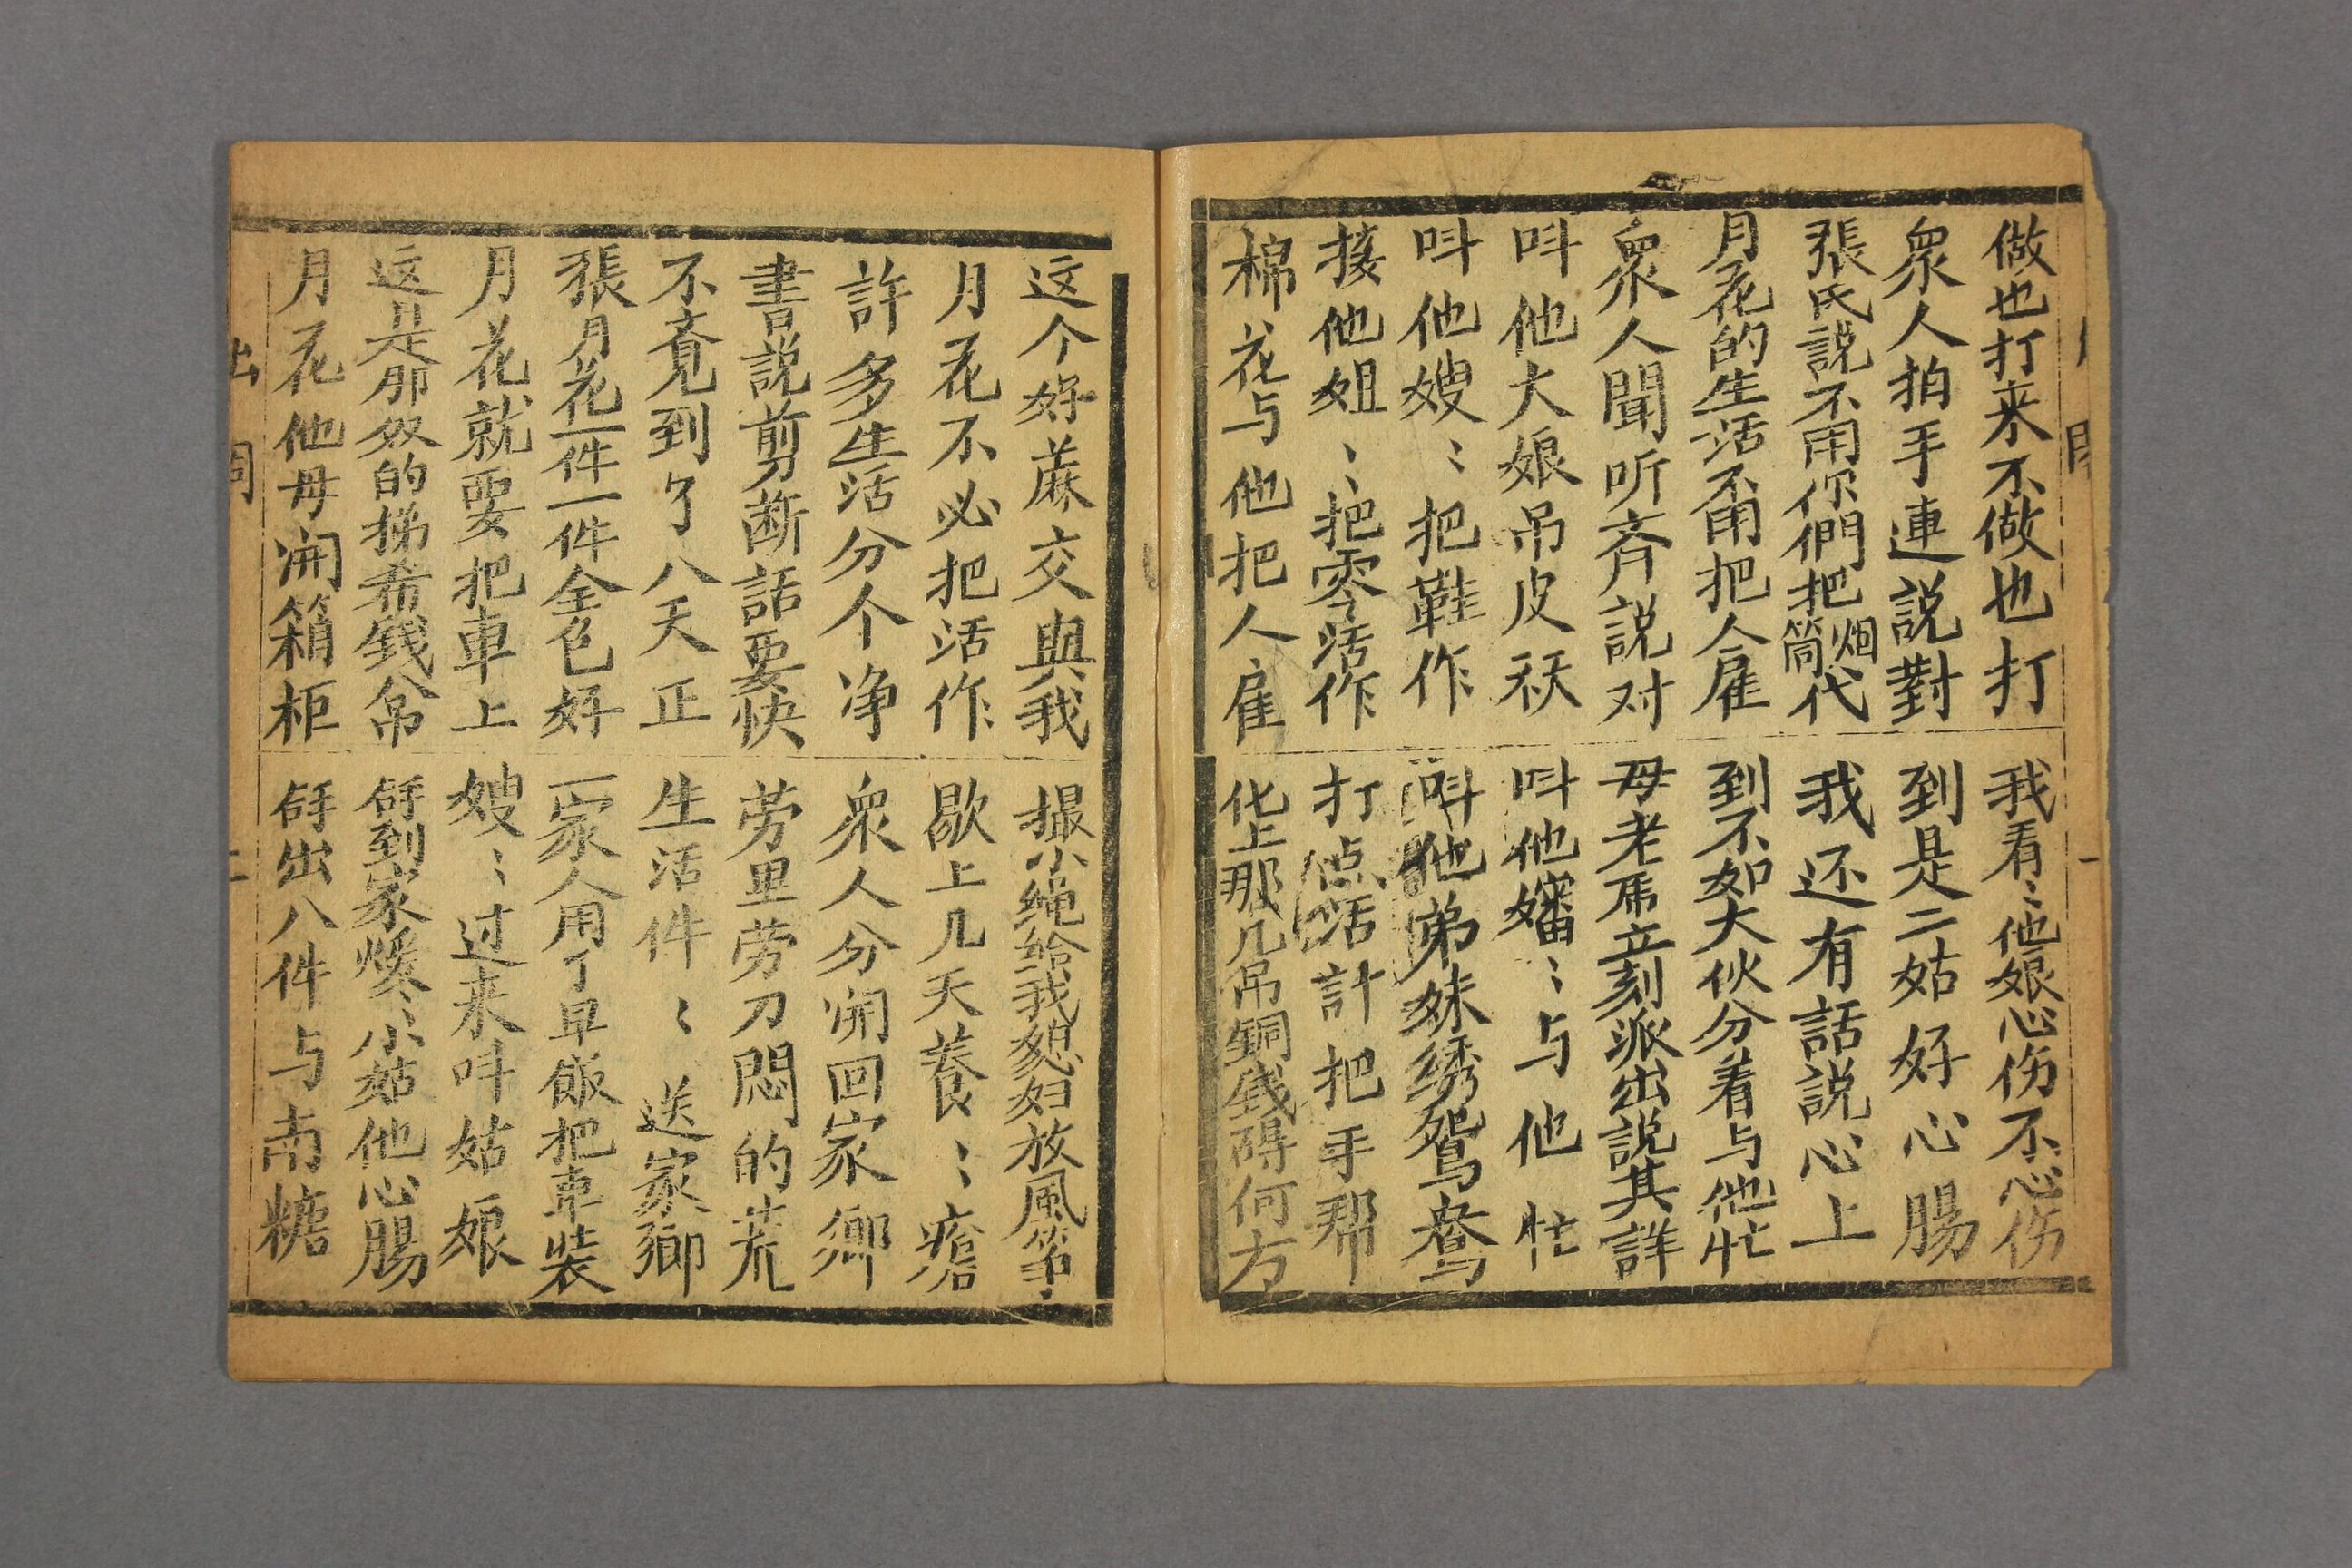 做也打来不做也打 我看〻他娘心伤不心伤
衆人拍手連説對 到是二姑好心腸
張氏説不用你們把烟筒代 我还有話説心上
月花的生活不用把人雇 到不如大伙分着与他忙
衆人聞听斉説对 母老虎立刻派出説其詳
呌他大娘吊皮袄 呌他嬸〻与他忙
呌他嫂〻把鞋作 呌他弟妹綉鴛鴦
接他姐〻把零活作 打点活計把手帮
棉花与他把人雇 化上那几吊銅銭碍何方
这个好蔴交與我 撮小绳给我媳妇放風筝
月花不必把活作 歇上几天養〻瘡
許多生活分个净 衆人分開回家鄉
書説剪断話要快 労里労刀悶的荒
不覔到了八天正 生活件〻送家鄉
張月花一件一件全色好 一家人用了早飯把車装
月花就要把車上 嫂〻过来呌姑娘
这是那双的揚希錢帛 到家煖〻小姑他心腸
月花他母開箱柜 出八件与南糖